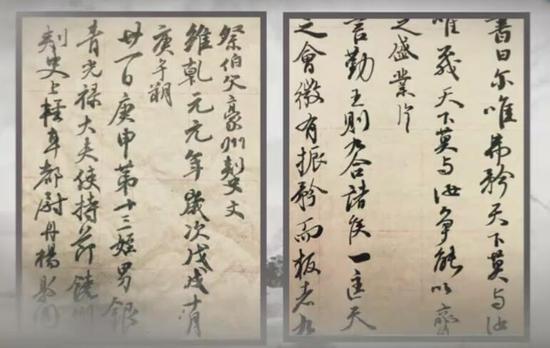 書曰尔唯弗矜天下莫与汝
唯天下莫与汝争能以齊
之盛業片
言勤王則九合諸侯一匡天
之會微有振矜而叛者九
祭伯父豪州刺史文
維乾元元年歲次戊戌十月
庚午朔
廿一日庚申第十三姪男銀
青光祿大夫使持節饒州
刺史上輕車都尉丹楊縣開國